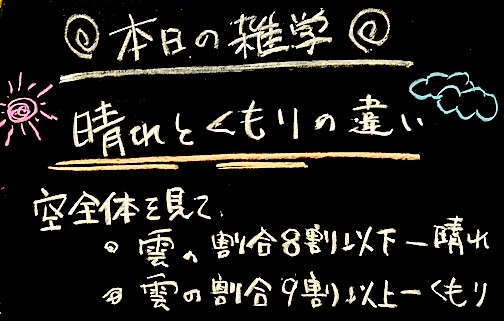 ◎本日の雑学◎
晴れとくもりの違い
空全体を見て、
◦雲の割合8割以下ー晴れ
◎雲の割合9割以上ーくもり